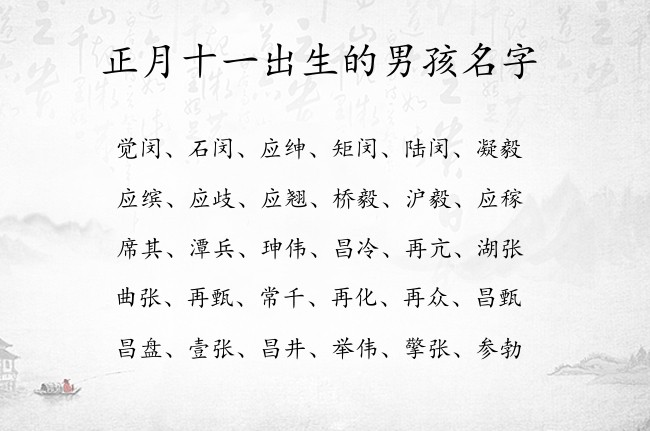 正月十一出生的男孩名字
觉闵、石闵、应绅、矩闵、陆闵、凝毅
应缤、应歧、应翘、桥毅、沪毅、应稼
席其、潭兵、珅伟、昌冷、再亢、湖张
曲张、再甄、常千、再化、再众、昌甄
昌盘、壹张、昌井、举伟、擎张、参勃